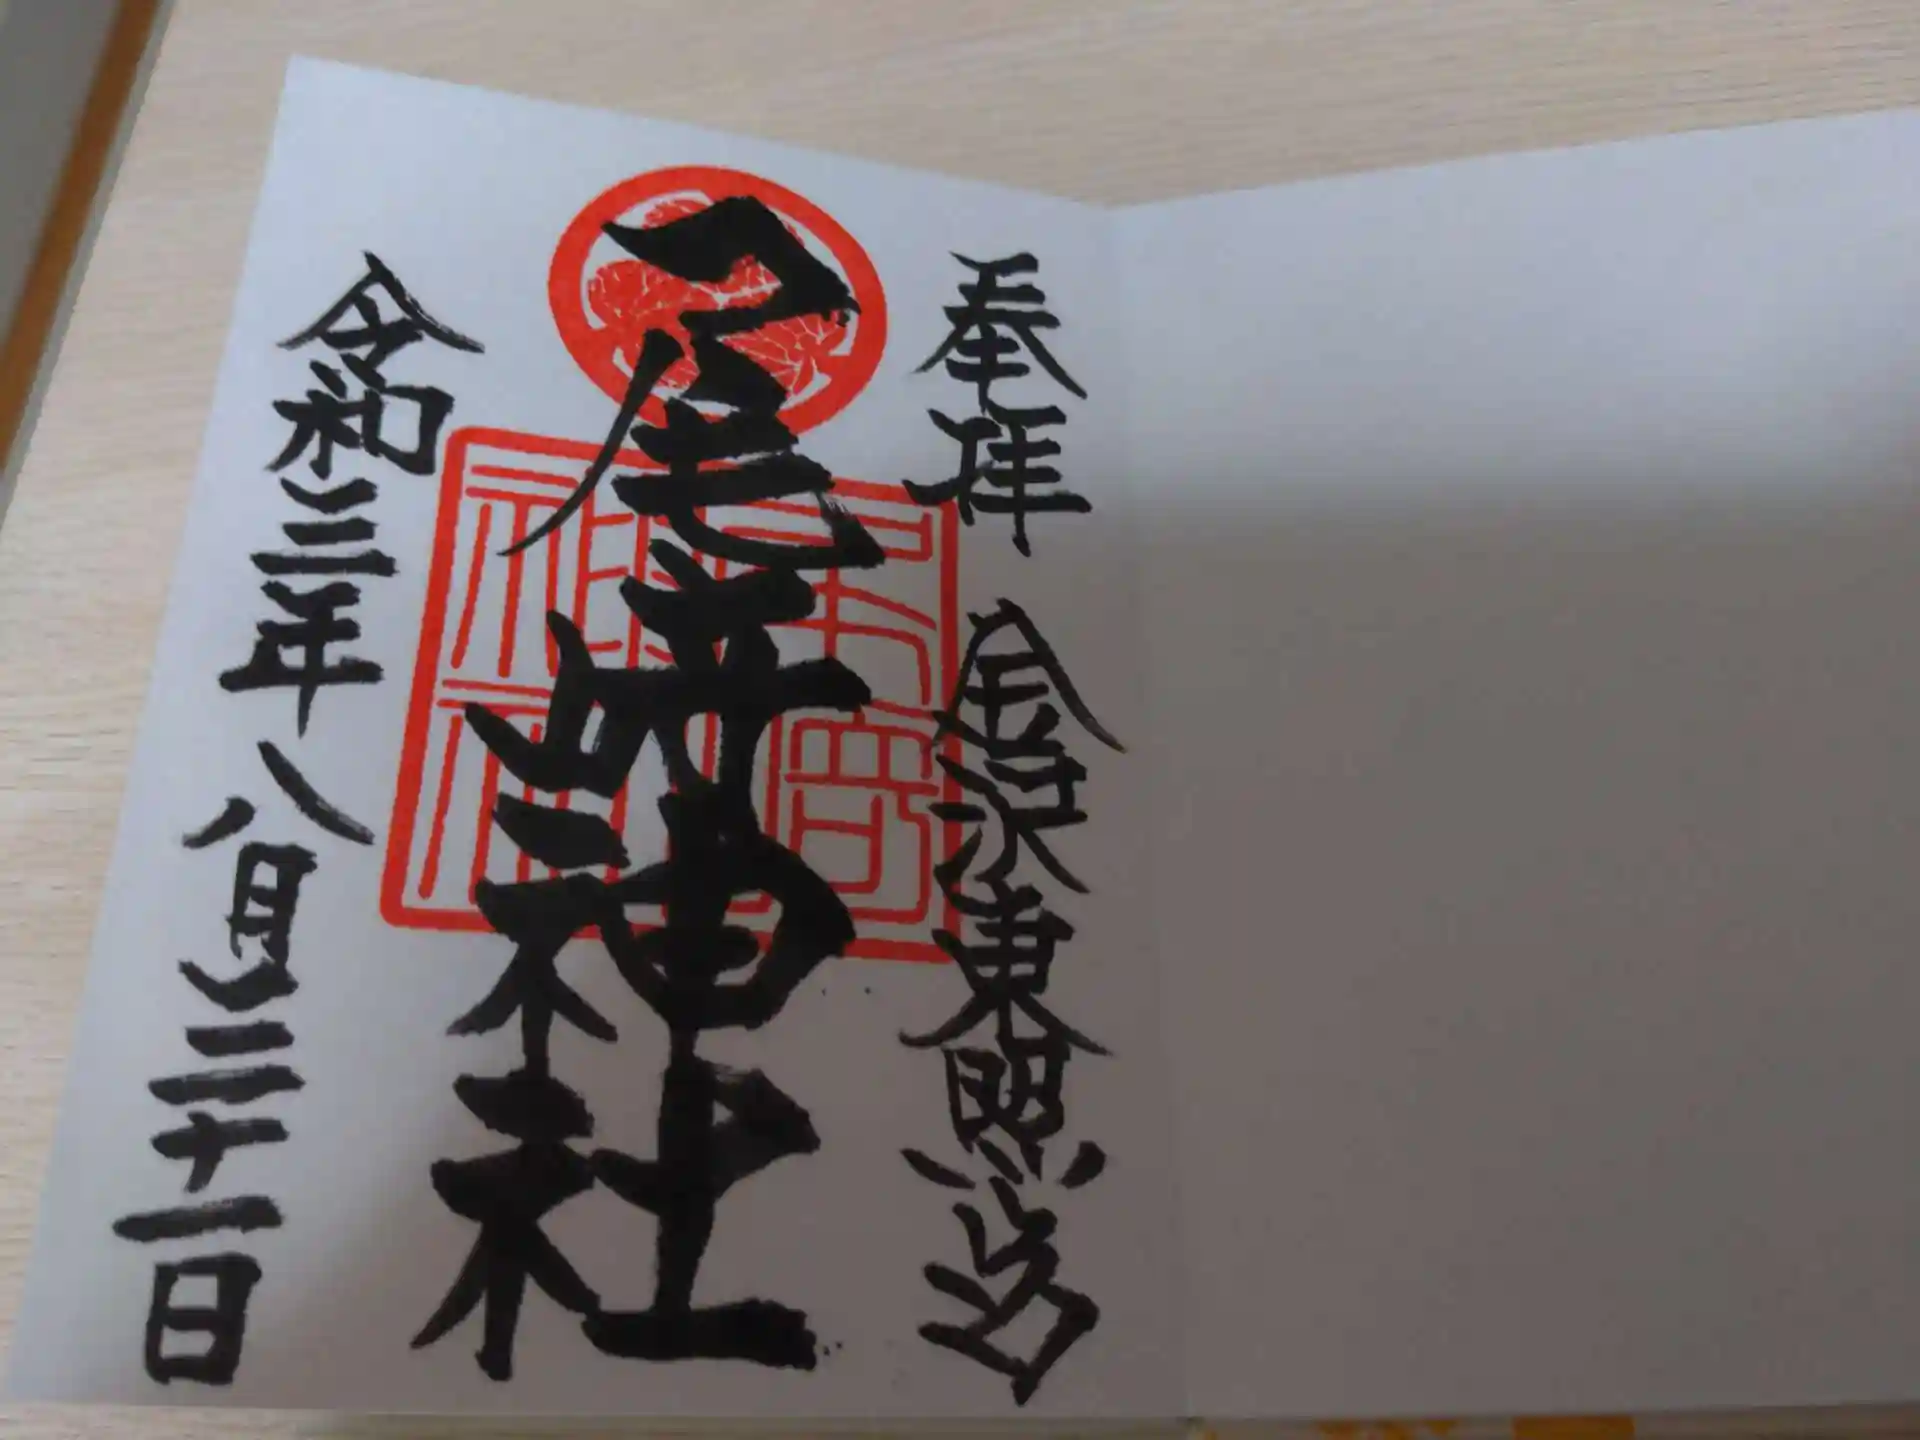 奉拝 金沢東照宮
尾﨑神社
令和三年八月二十一日